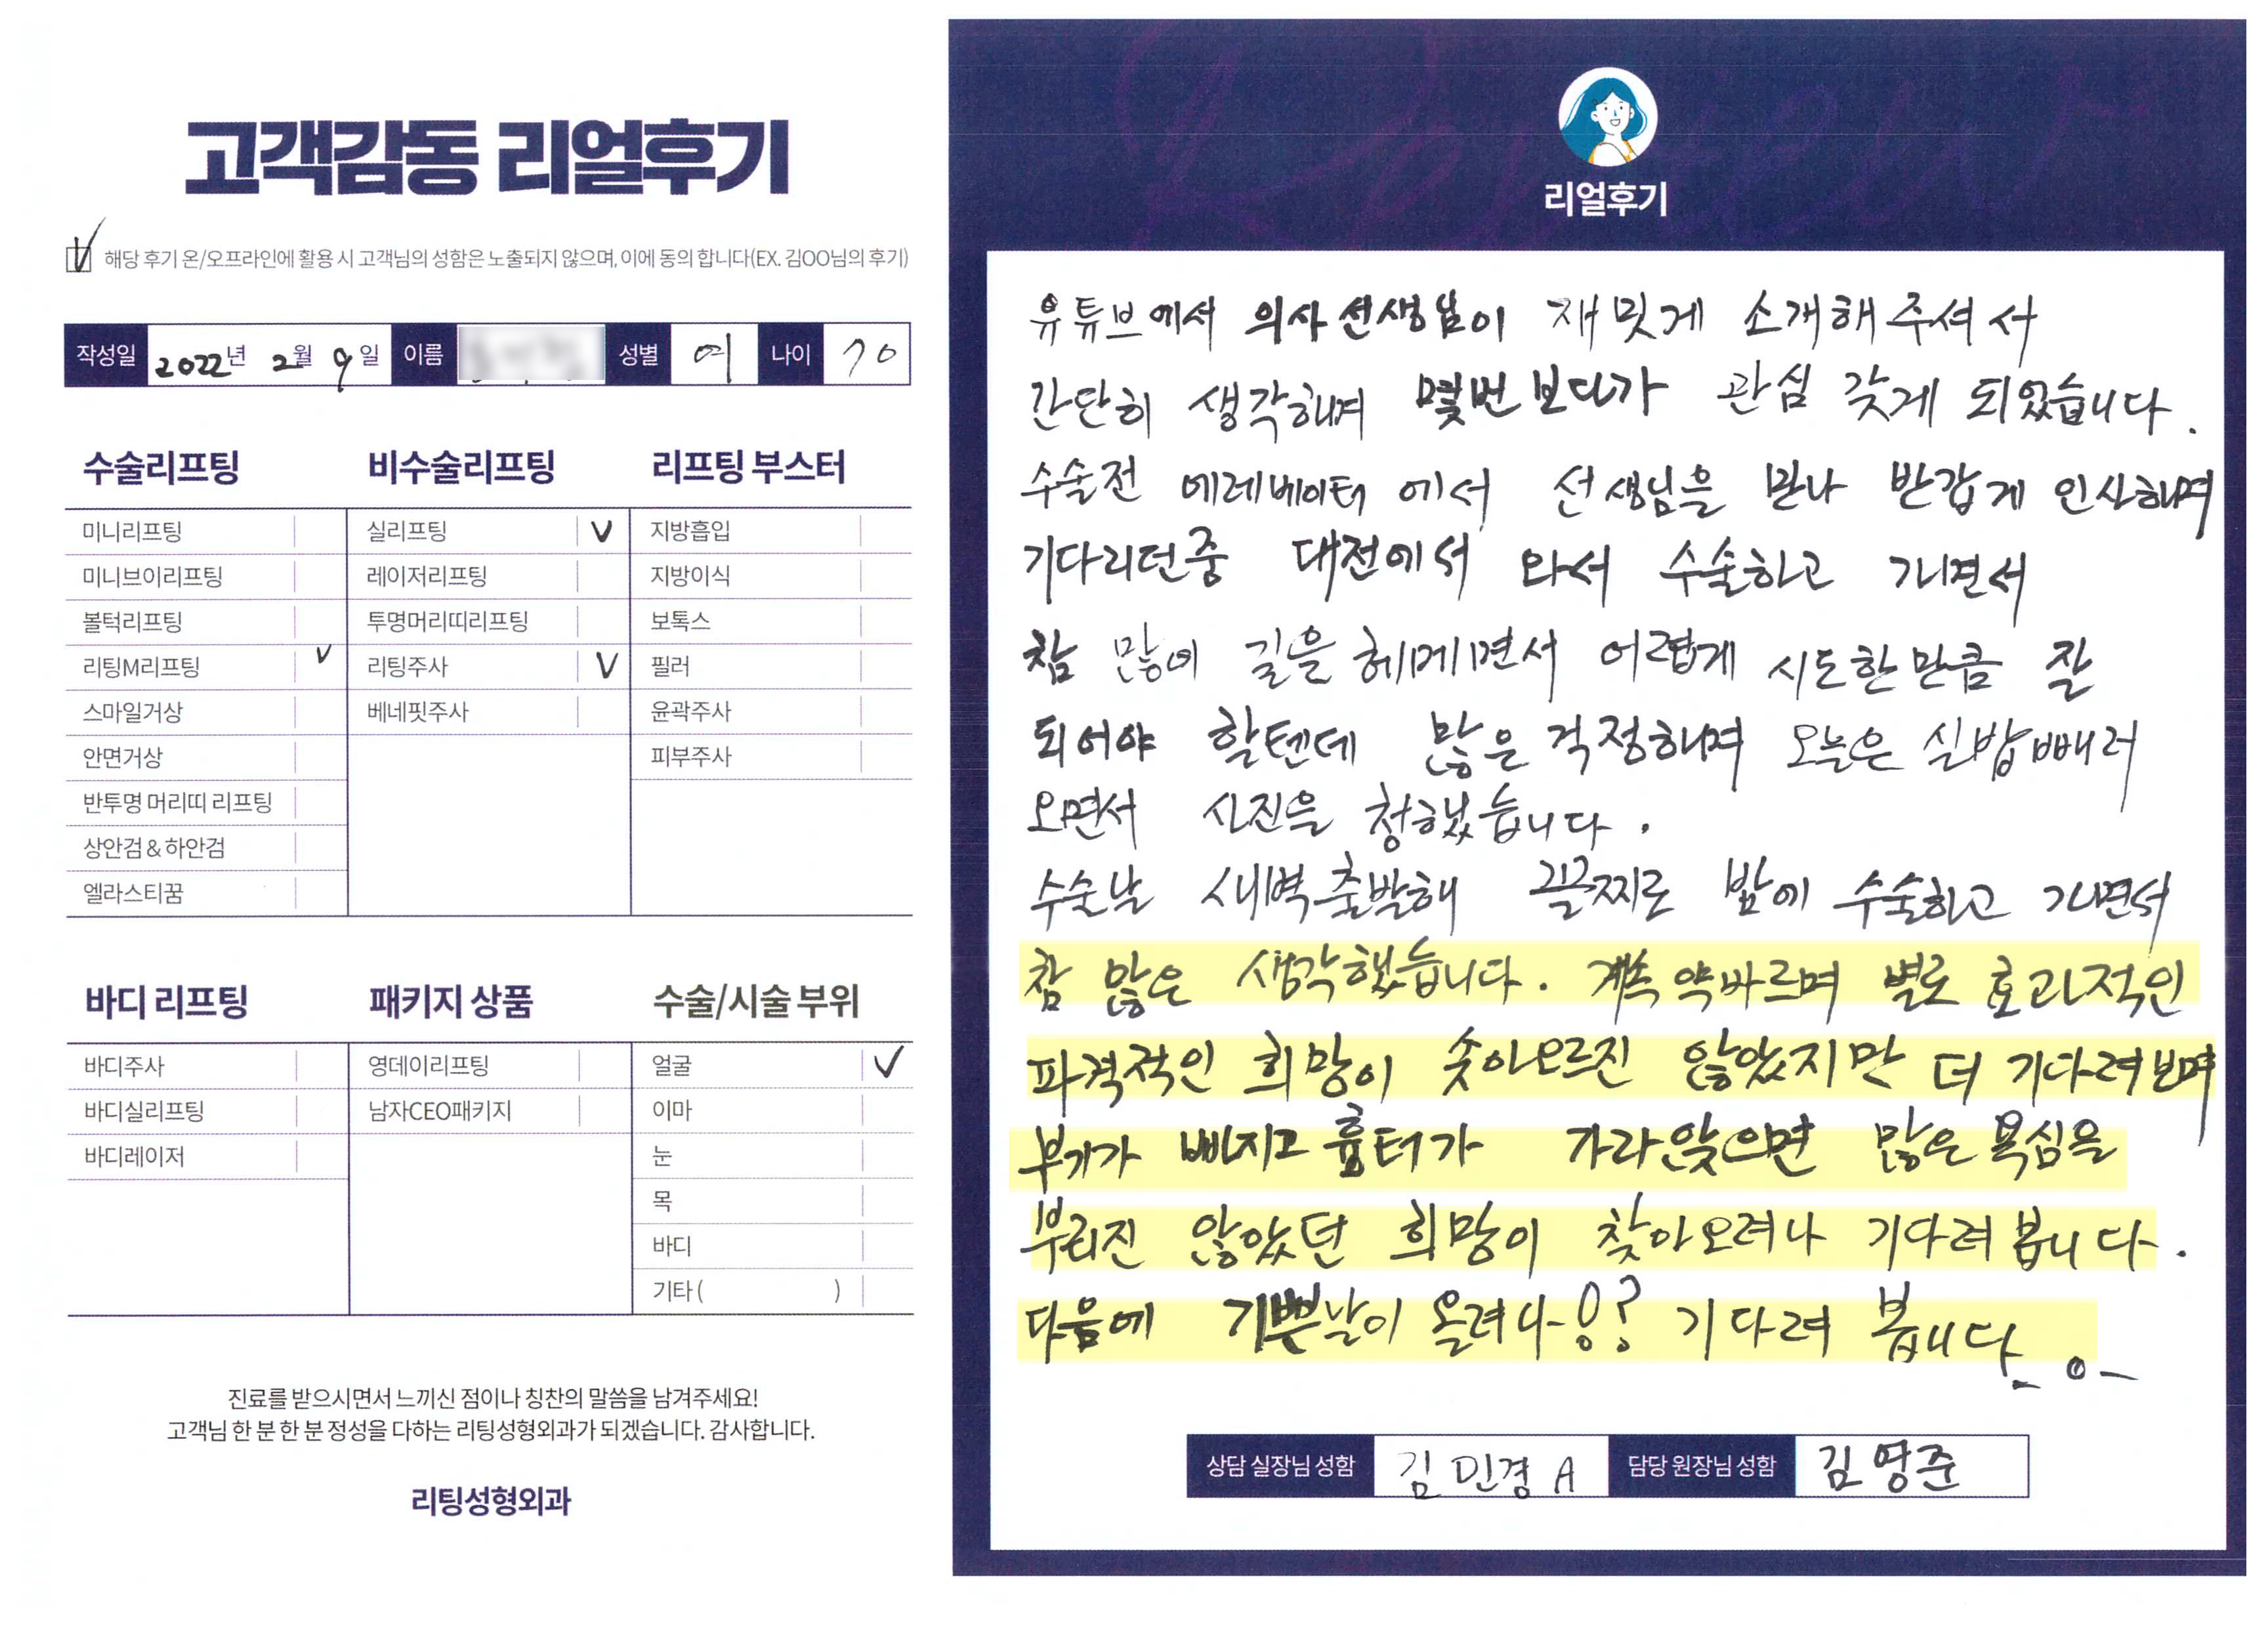 고객감동 리얼후기
해당 후기 온/오프라인에 활용 시 고객님의 성함은 노출되지 않으며, 이에 동의 합니다(EX. 김OO님의 후기)
작성일 2022년 2월 9일 이름 성별 여 나이 70
수술리프팅
미니리프팅
미니브이리프팅
볼턱리프팅
리팅M리프팅 V
스마일거상
안면거상
반투명 머리띠 리프팅
상안검 & 하안검
엘라스티꿈
비수술리프팅
실리프팅 V
레이저리프팅
투명머리띠리프팅
리팅주사 V
베네핏주사
리프팅 부스터
지방흡입
지방이식
보톡스
필러
윤곽주사
피부주사
바디 리프팅
바디주사
바디실리프팅
바디레이저
패키지 상품
영데이리프팅
남자CEO패키지
수술/시술 부위
얼굴 V
이마
눈
목
바디
기타 ( )
진료를 받으시면서 느끼신 점이나 칭찬의 말씀을 남겨주세요!
고객님 한 분 한 분 정성을 다하는 리팅성형외과가 되겠습니다. 감사합니다.
리팅성형외과
리얼후기
유튜브에서 의사선생님이 재밋게 소개해주셔서
간단히 생각하며 몇번보다가 관심 갖게 되었습니다.
수술전 에레베이터에서 선생님을 만나 반갑게 인사하며
기다리던중 대전에서 와서 수술하고 가면서
참 많이 길을 헤메면서 어렵게 시도한만큼 잘
되어야 할텐데 많은 걱정하며 오늘은 실밥빼러
오면서 사진을 청했습니다.
수술날 새벽출발해 끝찌로 밤에 수술하고 가면서
참 많은 생각했습니다. 계속 약바르며 별로 효과적인
파격적인 희망이 솟아오르진 않았지만 더 기다려보며
부기가 빠지고 흉터가 가라앉으면 많은 욕심을
부리진 않았던 희망이 찾아오려나 기다려봅니다.
다음에 기쁜날이 올려나-!? 기다려 봅니다_ o_
상담 실장님 성함 김민경 A 담당 원장님 성함 김영준